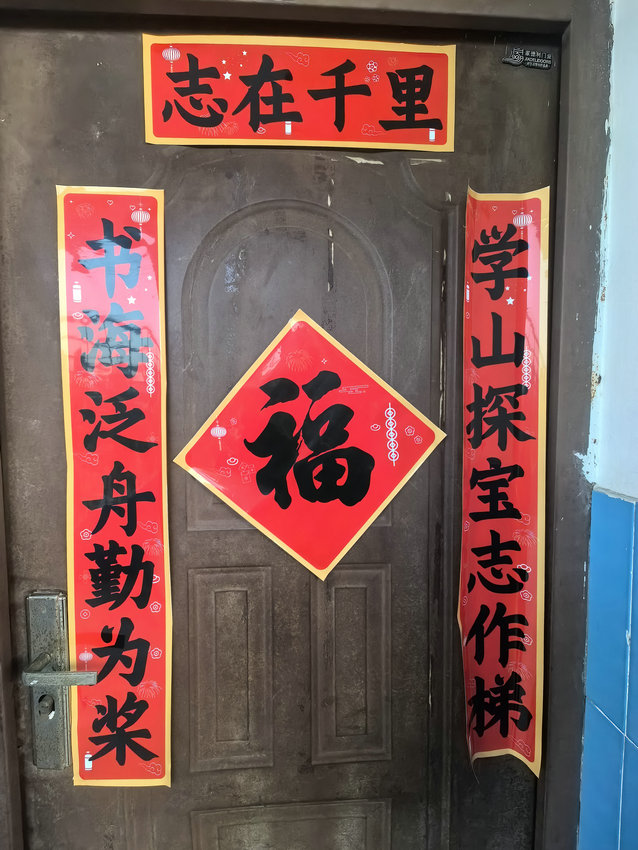 志在千里
书海泛舟勤为桨
福
学山探宝志作梯